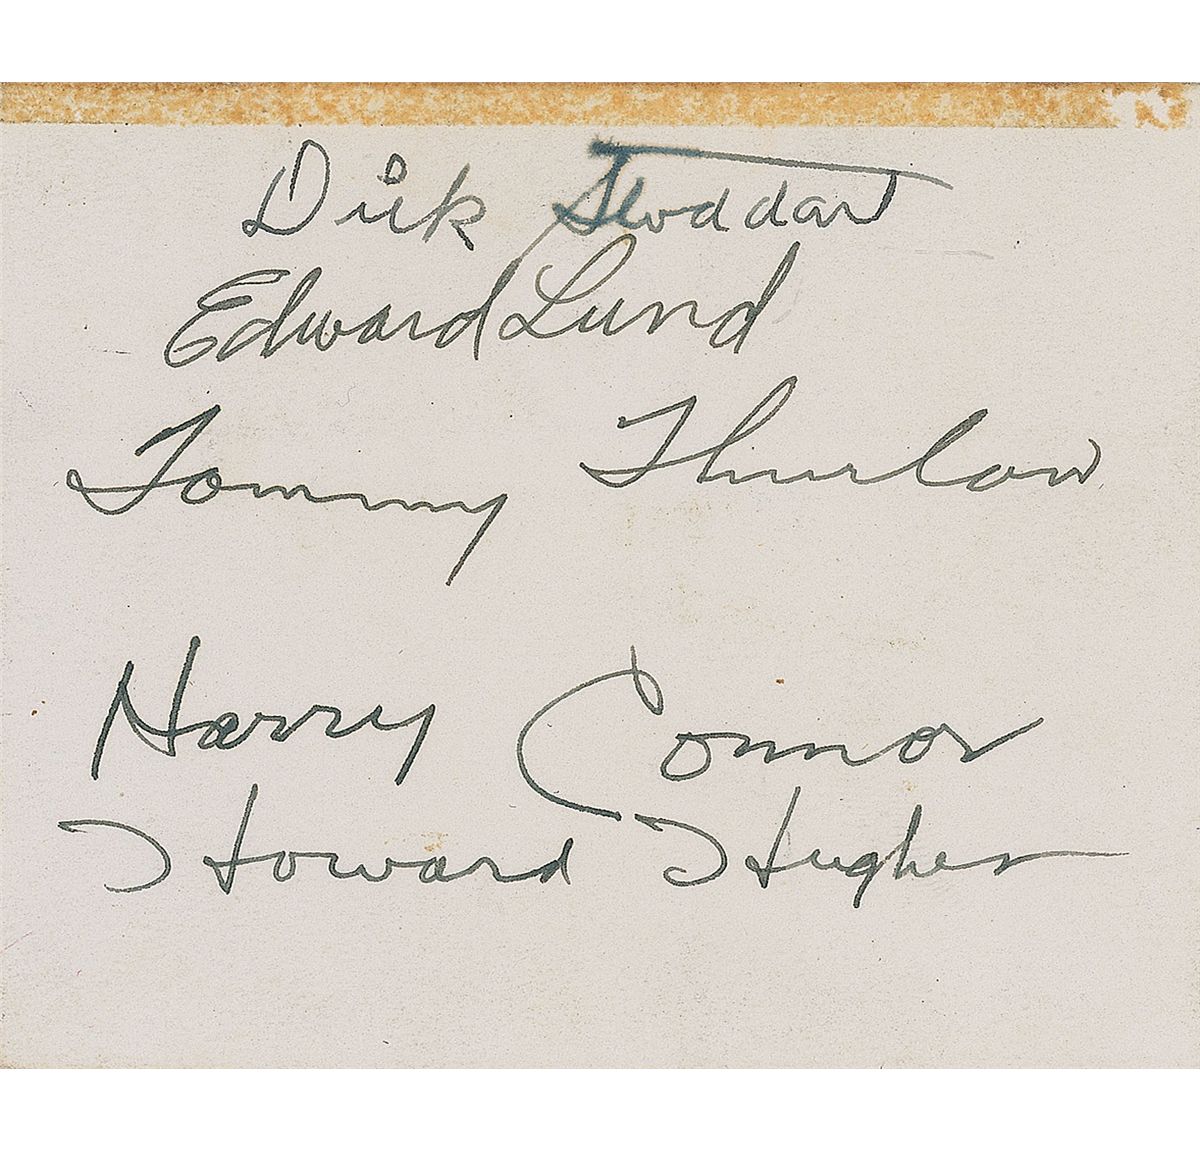 Dick Stoddart
Edward Lund
Tommy Thurlow
Harry Connor
Howard Hughes